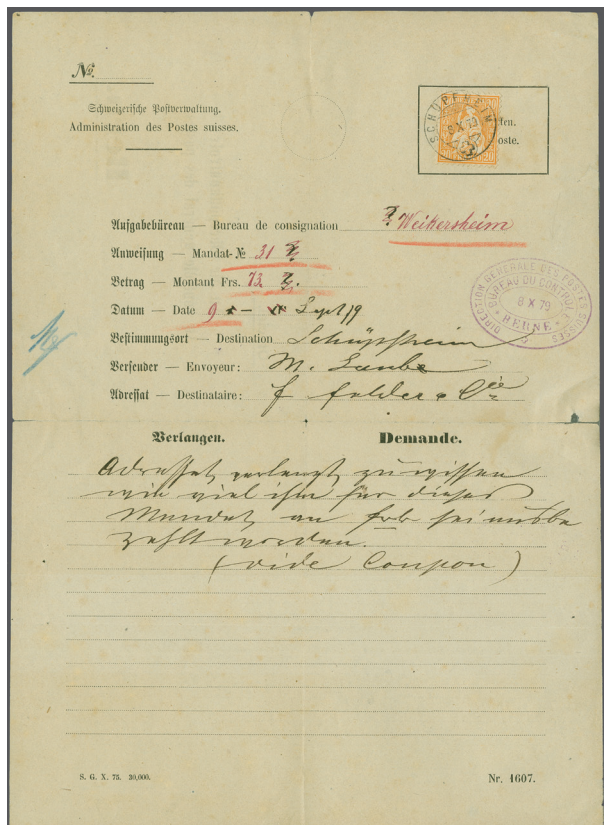 No.
Schweizerische Postverwaltung.
Administration des Postes suisses.
SCHÜPFHEIM
8 X 79
ten.
oste.
Aufgabebüreau — Bureau de consignation ? Weikersheim
Anweisung — Mandat-No 31 ?
Betrag — Montant Frs. 73 ?.
Datum — Date 9 Sept 79
Bestimmungsort — Destination Schüpfheim
Versender — Envoyeur: M. Laube
Adressat — Destinataire: F felder & Cie
DIRECTION GENERALE DES POSTES SUISSES
BUREAU DU CONTROLE
8 X 79
BERNE
Verlangen. Demande.
Adressat verlangt zu wissen
wie viel ihm für dieses
Mandat an
zahlt worden.
(vide Coupon)
S. G. X. 75. 30,000. Nr. 1607.